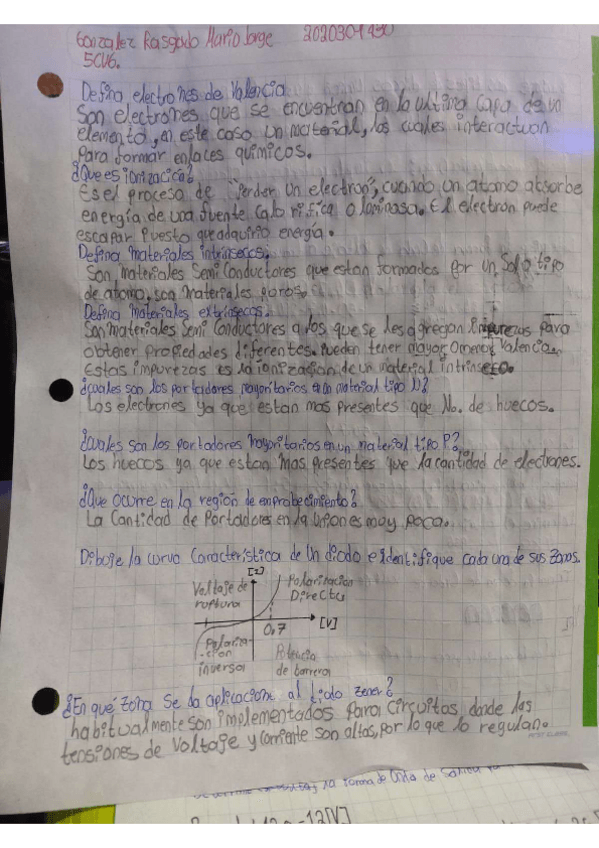 Gonzalez Rasgado Mario Jorge 2020301430
5CV6.
Defina electrones de Valencia
Son electrones que se encuentran en la ultima capa de un
elemento, en este caso un material, los cuales interactuan
para formar enlaces quimicos.
¿Que es ionizacion?
Es el proceso de "Perder un electron", cuando un atomo absorbe
energía de una fuente calorifica o luminosa. El electron puede
escapar Puesto que adquirio energía.
Defina materiales intrinsecos.
Son materiales Semi Conductores que estan formados por un Solo tipo
de atomo, son materiales puros.
Defina materiales extrinsecos.
Son materiales Semi Conductores a los que se les agregan Impurezas para
obtener propiedades diferentes. Pueden tener mayor o menor Valencia.
Estas impurezas es la ionizacion de un material intrinseco.
¿Cuales son los portadores mayoritarios en un material tipo N?
Los electrones ya que estan mas presentes que No. de huecos.
¿Cuales son los portadores mayoritarios en un material tipo P?
Los huecos ya que estan mas presentes que la cantidad de electrones.
¿Que ocurre en la region de emprobecimiento?
La Cantidad de Portadores en la union es muy poca.
Dibuje la curva Característica de un diodo e identifique cada una de sus Zonas.
[I]
Voltaje de
ruptura
Polarizacion
Directa
[V]
0.7
Polariza-
cion
inversa
Potencia
de barrera
¿En qué Zona Se da aplicacione al diodo zener?
habitualmente son implementados para circuitos, donde las
tensiones de voltaje y corriente son altas, por lo que lo regulan.
la forma de Onda de
-12[V]